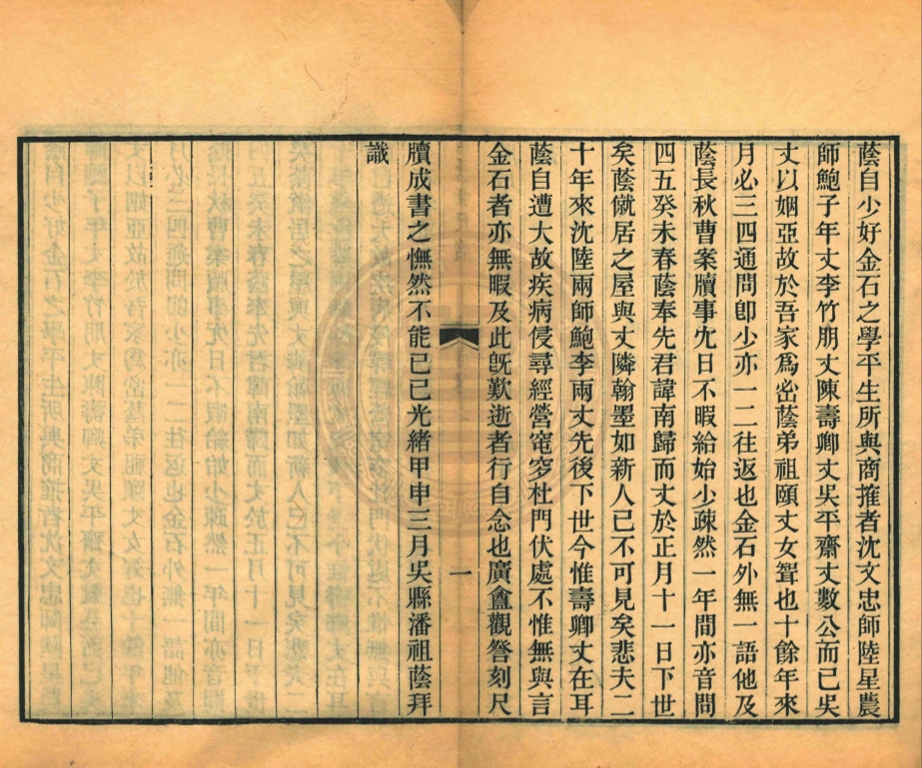 蔭自少好金石之學平生所與商搉者沈文忠師陸星農
師鮑子年丈李竹朋丈陳壽卿丈吳平齋丈數公而已吳
丈以姻亞故於吾家爲密蔭弟祖頤丈女壻也十餘年來
月必三四通問卽少亦一二往返也金石外無一語他及
蔭長秋曹案牘事宂日不暇給始少疎然一年間亦音問
四五癸未春蔭奉先君諱南歸而丈於正月十一日下世
矣蔭僦居之屋與丈隣翰墨如新人已不可見矣悲夫二
十年來沈陸兩師鮑李兩丈先後下世今惟壽卿丈在耳
蔭自遭大故疾病侵尋經營窀穸杜門伏處不惟無與言
金石者亦無暇及此旣歎逝者行自念也廣盦觀詧刻尺
一
牘成書之憮然不能已已光緒甲申三月吳縣潘祖蔭拜
識